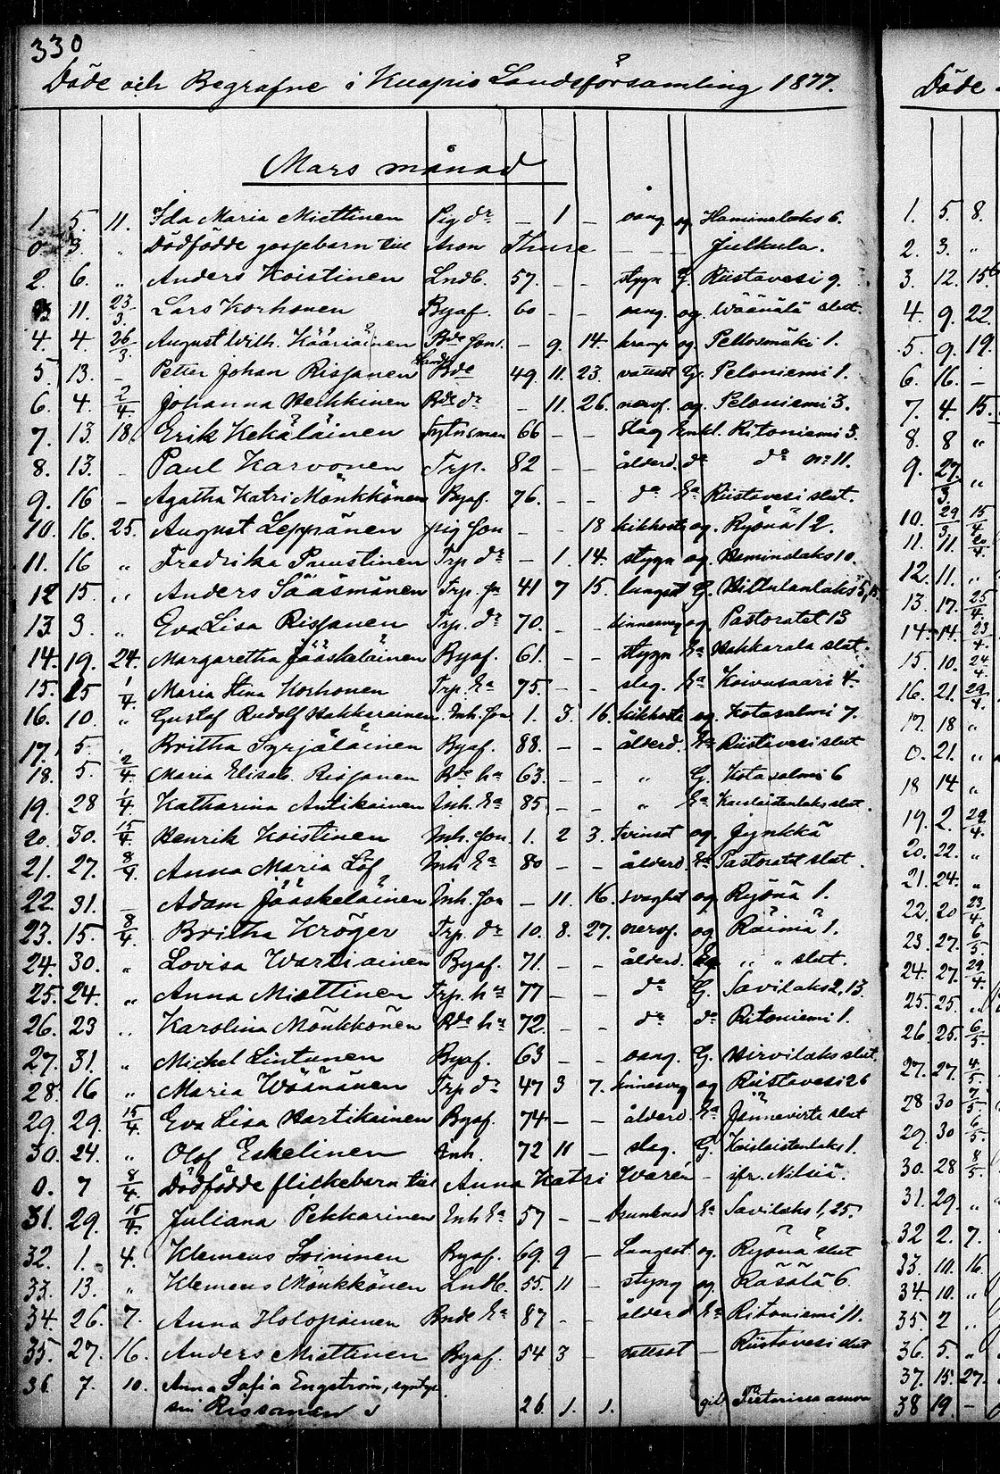 330
Döde och Begrafne i Kuopio Landsförsamling 1877.
Mars månad
1. 5. 11. Ida Maria Miettinen Pig dr — 1 — og Haminalaks 6.
0. 3. " Dödfödde gossebarn till Aron Thure — — Julkula.
2. 6. " Anders Koistinen Lndb. 57. — — stygn G. Riistavesi 9.
11. 23/3. Lars Korhonen Byaf. 60 — — og Wäänälä slut.
4. 4. 26/3 August Wilh. Kääriäinen Bde son. — 9. 14. kramp og Pellosmäki 1.
5. 13. — Petter Johan Rissanen Bde 49. 11. 23. vattust G. Peloniemi 1.
6. 4. 2/4. Johanna Heikkinen Bde dr — 11. 26. nerf. og. Peloniemi 3.
7. 13. 18. Erik Kekäläinen 66 — — slag Enkl. Ritoniemi 3.
8. 13. — Paul Karvonen Trp. 82 — — ålderd. do do no 11.
9. 16 — Agatha Katri Mönkkönen Byaf. 76. — — do Ea Riistavesi slut.
10. 16. 25. August Leppänen pig son — 18 kikhosta og. Ryönä 12.
11. 16 " Fredrika Puustinen Trp dr — 1. 14. stygn og Haminalaks 10.
12 15. " Anders Sääsmänen Trp. 41 7 15. lungsot G.
13. 3. " Eva Lisa Rissanen Trp. dr 70. — — og. Pastoratet 13
14. 19. 24. Margaretha Jääskeläinen Byaf. 61. — — stygn Ea Hakkarala slut.
15. 25 1/4. Maria Stina Korhonen Trp Ea 75. — — slag. Ea Koivusaari 4.
16. 10. " Gustaf Rudolf Hakkarainen. Inh. son 1. 3 16. kikhosta og. Kotasalmi 7.
17. 5. " Britha Syrjäläinen Byaf. 88. — — ålderd. Ea Riistavesi slut
18. 5. 2/4. Maria Elisab. Rissanen Bde ha 63. — — " G. Kotasalmi 6
19. 28 1/4. Katharina Antikainen Inh. Ea 85. — — " Ea slut.
20. 30. 15/4. Henrik Koistinen Inh. son 1. 2 3. tvinsot og. Jynkkä
21. 27. 8/4. Anna Maria Löf Inh Ea 80 — — ålderd. Ea Pastoratet slut.
22. 31. — Adam Jääskeläinen Inh. son — 11. 16. svaghet og Ryönä 1.
23. 15. 8/4. Britha Kröger Trp. dr 10. 8. 27. nerf. og Räimä 1.
24. 30. " Lovisa Wartiainen Byaf. 71. — — ålderd. Ea " " slut.
25. 24. " Anna Miettinen Trp. ha 77 — — do G. Savilaks 2, 13.
26. 23 " Karolina Mönkkönen Bde ha 72. — — do do Ritoniemi 1.
27. 31. " Michel Lintunen Byaf. 63 — — G. Hirvilaks slut.
28. 16 " Maria Wäänänen Trp dr 47 3 7. og Riistavesi 26
29. 29. 15/4. Eva Lisa Hartikainen Byaf. 74 — — ålderd. Ea Jännevirta slut
30. 24. " Olof Eskelinen Inh. 72 11 — slag. G.
0. 7 8/4. Dödfödde flickebarn till Anna Katri Warén — ifr. Nilsiä.
31. 29. 15/4. Juliana Pekkarinen Inh Ea 57 — — Ea Savilaks 1, 25.
32. 1. 4. Klemens Soininen Byaf. 69. 9 — Lungsot og. Ryönä slut
33. 13. " Klemens Mönkkönen Lndb. 55. 11 — styng og Räsälä 6.
34. 26. 7. Anna Holopainen Bnde Ea 87 — — ålderd Ea Ritoniemi 11.
35. 27. 16. Anders Miettinen Byaf. 54 3 — vattsot — Riistavesi slut
36. 7. 10. Anna Sofia Engström,
Rissanen 26. 1. 1. gift
Döde
1. 5. 8.
2. 3. "
3. 12.
4. 9. 22.
5. 9. 19.
6. 16. —
7. 4. 15.
8. 8 "
9. 27/3. "
10. 29/3. 15/4
11. 11.
12. 11. "
13. 17. 25/4
14. 14. 23/4.
15. 10. 24/4.
16. 21. 29/4.
17. 18 "
0. 21. "
18 14 "
19. 2. 29/4.
20. 22. "
21. 24. "
22. 20 23/4.
23. 27. 6/5
24. 27. 29/4.
25. 25. "
26. 25. 6/5.
27. 27. 4/5.
28 30 7/5.
29. 30 6/5.
30. 28 8/5.
31. 29. "
32 2. 7.
33. 10. 16.
34. 10. "
35. 2 "
36. 5. "
37. 15. 27.
38 19. —